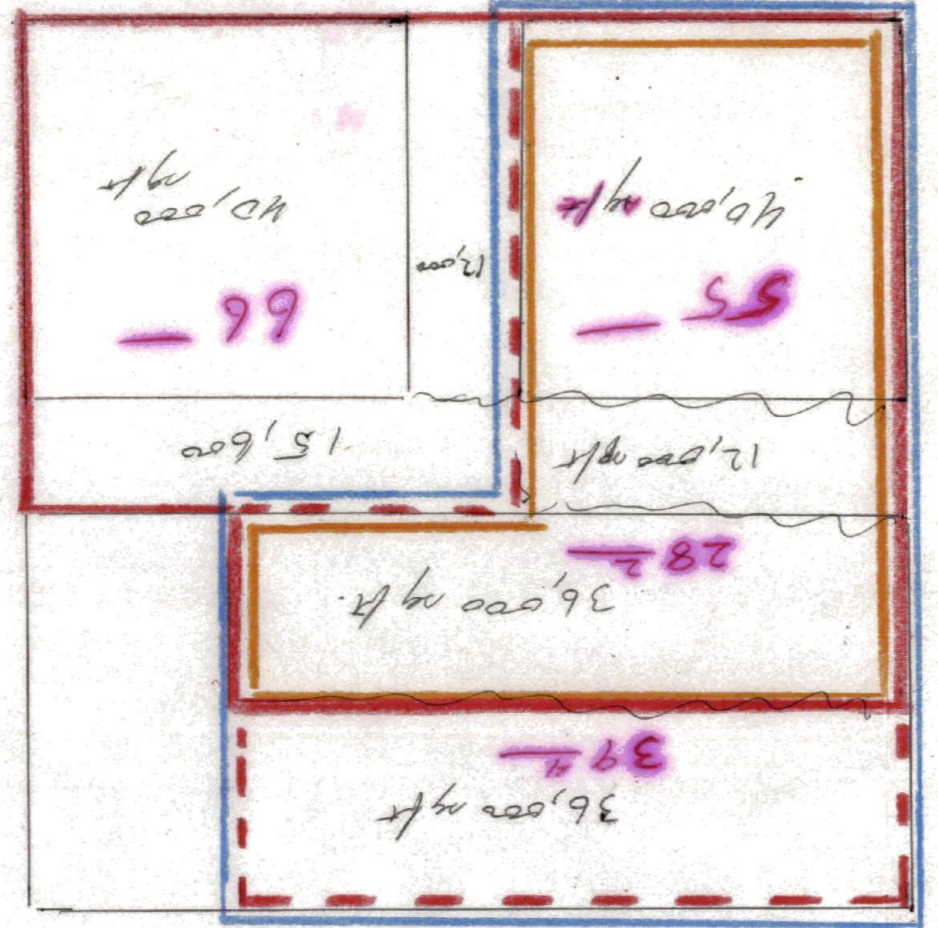 36,000 sq ft
39 4
36,000 sq ft.
28 2
12,000 sq ft
15,600
55 —
66 —
12,000
40,000 sq ft
40,000
sq ft